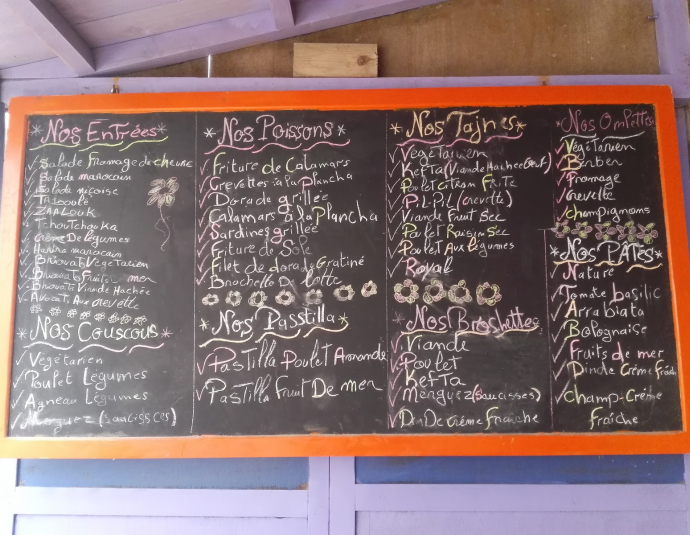 *Nos Entrées*
Salade fromage de chevre
Salade marocain
Salade niçoise
Taboulé
ZAALOUK
Tchoutchouka
Crème De légumes
Harira marocain
Briouats Végétarien
Briouats Fruit mer
Briouats Viande Hachée
Avocats Aux crevette
*Nos Couscous*
Végétarien
Poulet Légumes
Agneau Légumes
Merguez (Saucisses)
*Nos Poissons*
Friture de Calamars
Crevettes à la Plancha
Dorade grillée
Calamars à la Plancha
Sardines grillée
Friture de Sole
Filet de dorade Gratiné
Brochette De Lotte
*Nos Passtilla*
Pastilla Poulet Amande
Pastilla Fruit De mer
*Nos Tajnes*
Végétarien
KefTa (Viande Hachée Oeuf)
Poulet Citron Frite
PiL-PiL (crevette)
Viande Fruit Sec
Poulet Raisin Sec
Poulet Aux légumes
Royal
*Nos Broshettes
Viande
Poulet
KefTa
Merguez (Saucisses)
DinDe crème Fraiche
*Nos Omlettes
Végétarien
Berber
Fromage
Crevette
champignons
*Nos PÂTES*
Nature
Tomate basilic
Arrabiata
Bolognaise
Fruits de mer
Dinde Crème fraich
champ-crème
fraîche